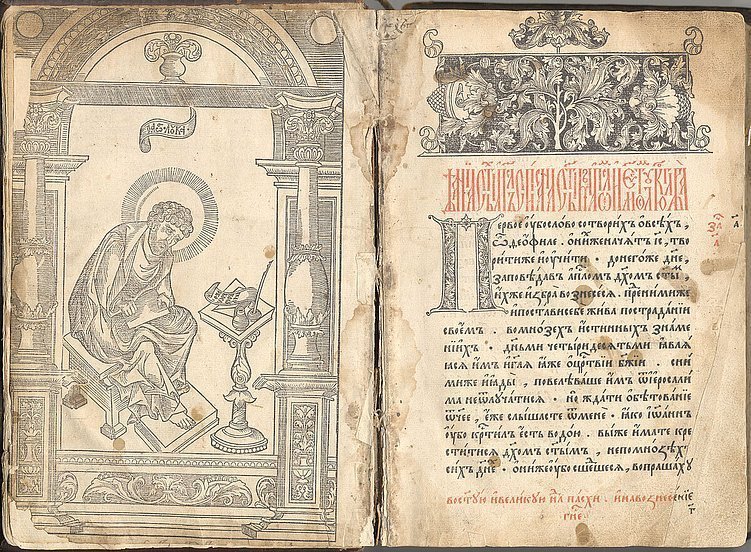 лꙋка
Первое ᲂубослово сотворихъ ѡвсѣхъ ,
ѽдеѡфиле . ѡниженачѧтъ іс҃ , тво
ритиже иоучити . донегоже дн҃е ,
заповѣдавъ ап҃лом дх҃ом ст҃ы
ихже избра вознесесѧ . преⷣнимиже
ипостависеде жива пострадании
своемъ . вомнозех истинных знаме
нїих . дн҃ьми четыридесѧтьми ꙗвлѧ
ꙗсѧ имъ иг҃лѧ ꙗже оцр҃твїи бж҃їи . сни
миже иꙗды , повелѣваше имъ ѿерⷭ҇али
ма неѿлꙋчатисѧ . но ждати ѡбѣтованїе
ѿч҃ее , еже слышасте ѿмене . ꙗко їѡаннъ
оубо крⷭ҇тилъ есть водою . выже имате кре
ститисѧ дх҃омъ ст҃ымъ , непомноѕѣхъ
сихъ дн҃е . ѡниже оубо сшедшесѧ , вопрашахꙋ
востꙋю ивеликꙋю нл҃ пасхи . инавознесенїе
гн҃е